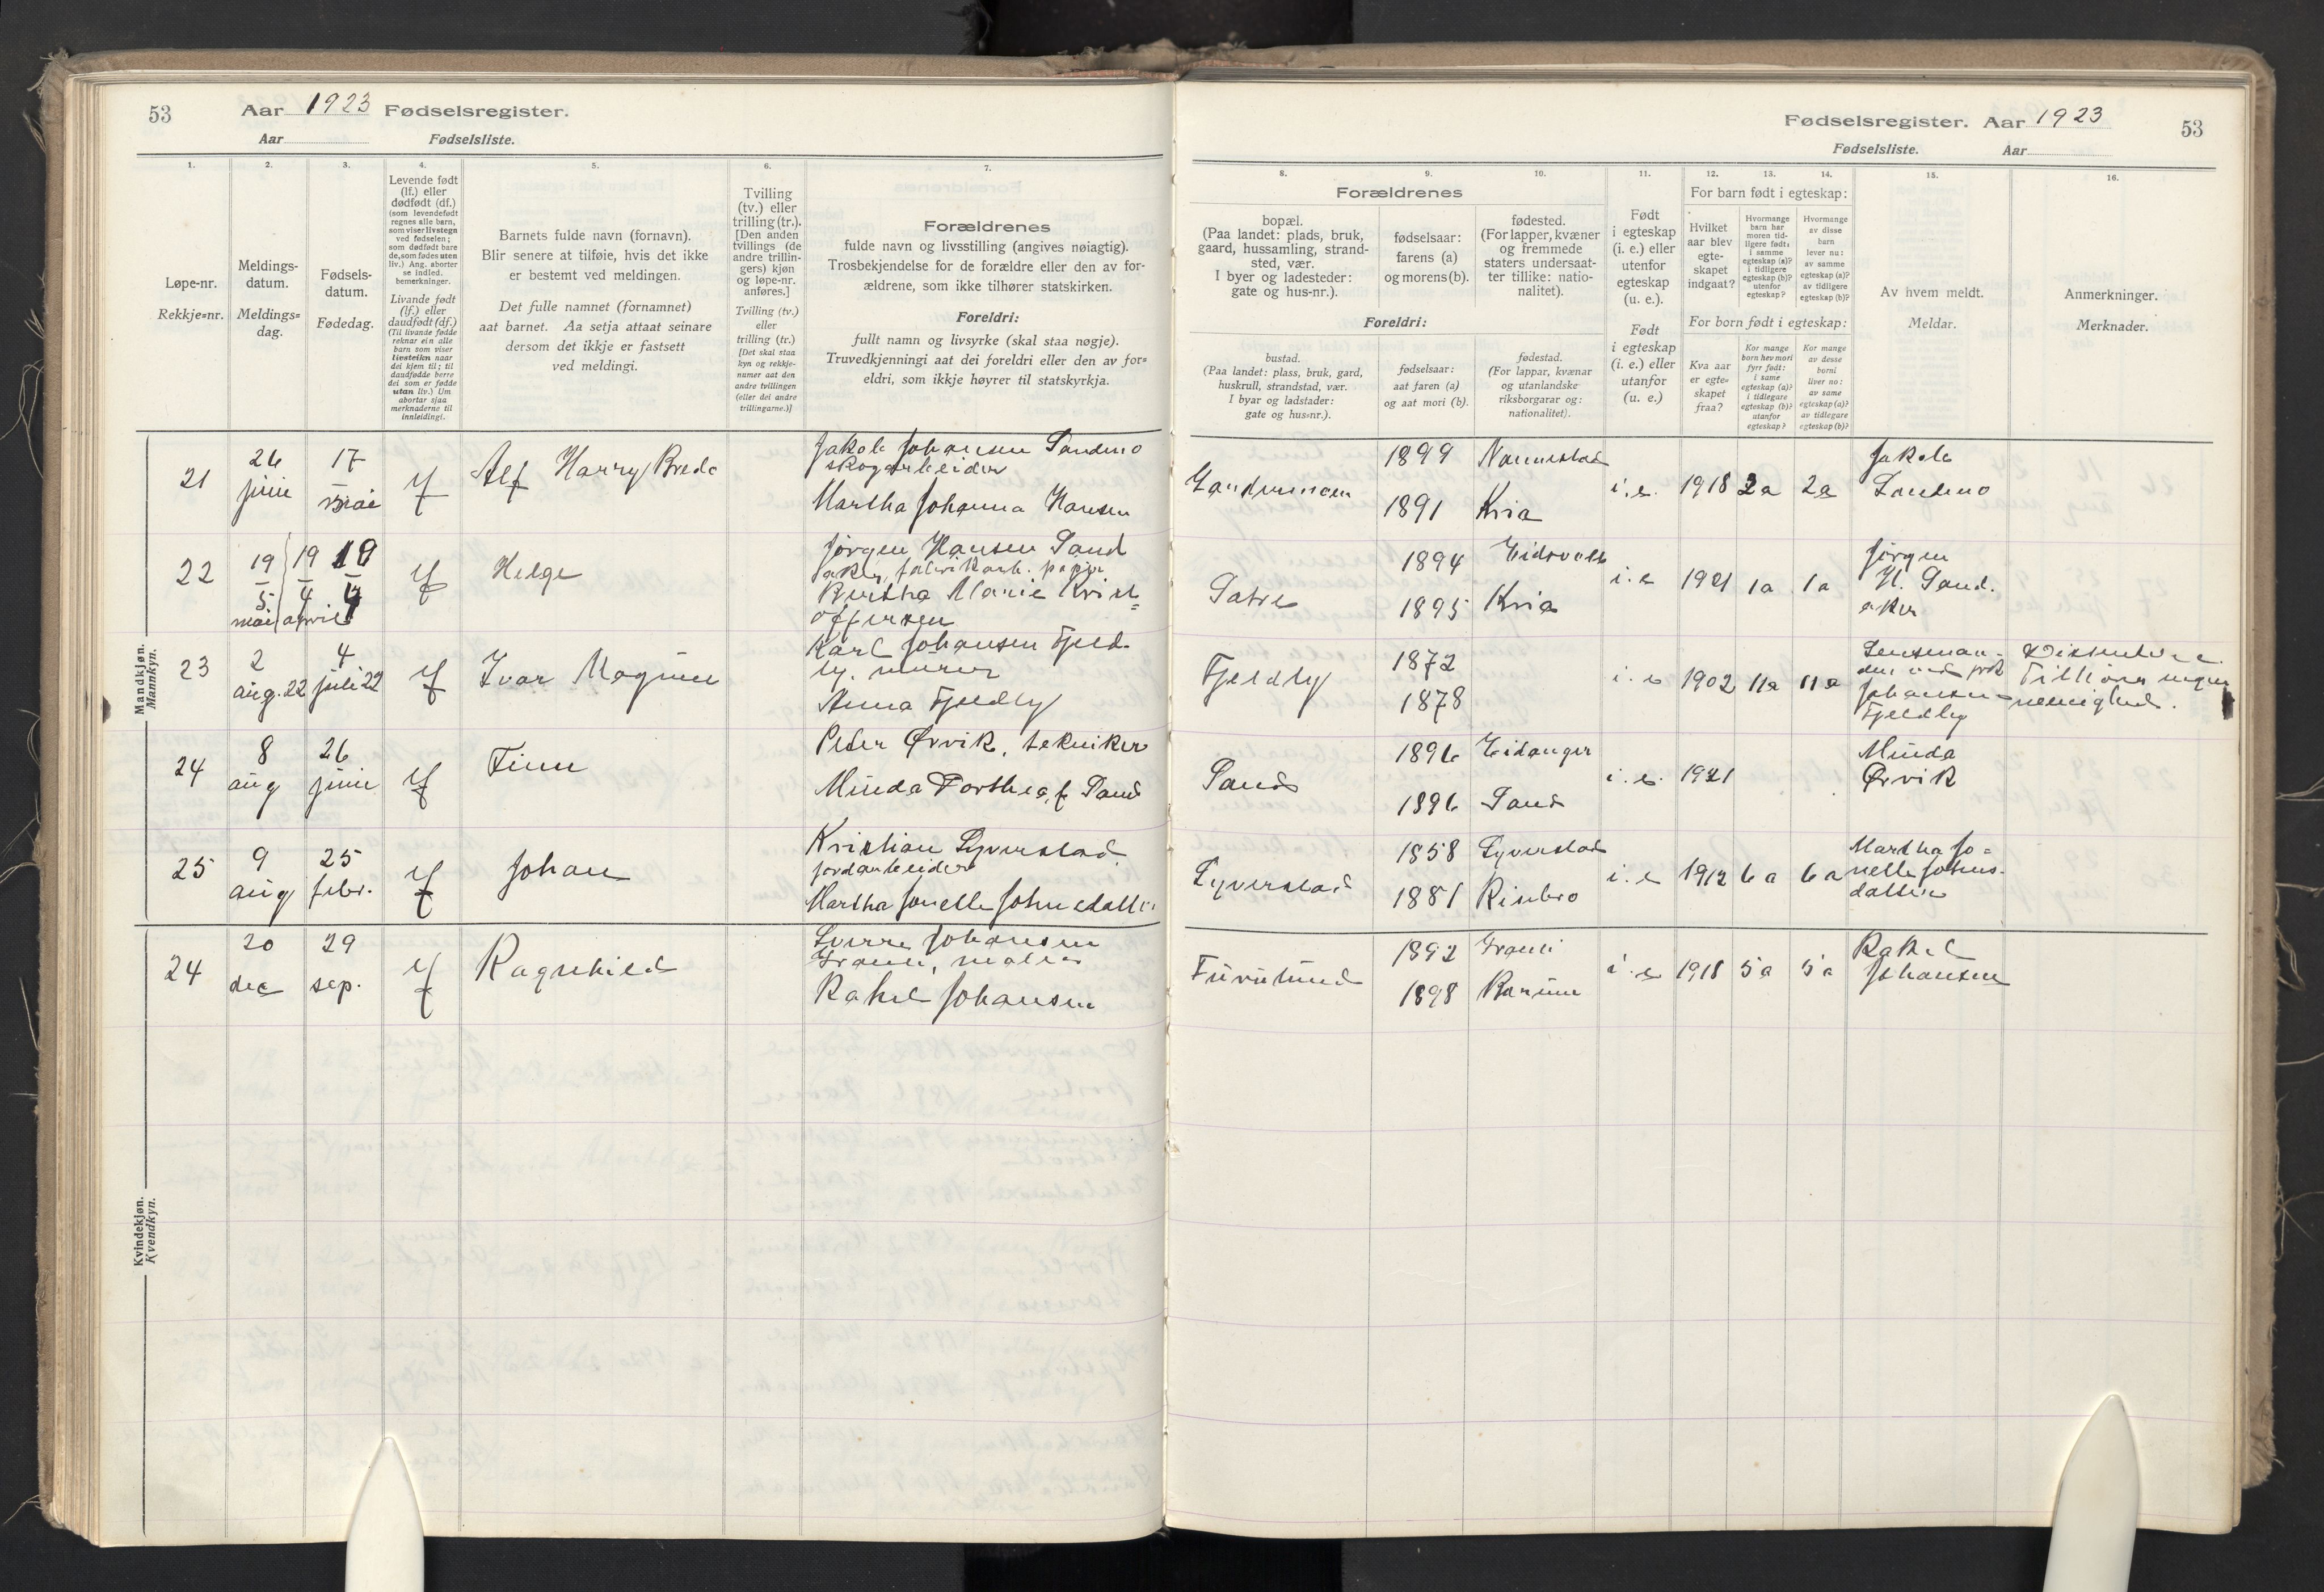 53
Aar 1923 Fødselsregister.
Aar Fødselsliste.
1.
2.
3.
4.
5.
6.
7.
Løpe-nr.
Rekkje=nr.
Meldings-
datum.
Meldings=
dag.
Fødsels-
datum.
Fødedag.
Levende født
(lf.) eller
dødfødt (df.)
(som levendefødt
regnes alle barn,
som viser livstegn
ved fødselen;
som dødfødt bare
de, som fødes uten
liv.) Ang. aborter
se indled.
bemerkninger.
Livande født
(lf.) eller
daudfødt (df.)
(Til livande fødde
reknar ein alle
barn som viser
livsteikn naar
dei kjem til; til
daudfødde berre
dei som er fødde
utan liv.) Um
abortar sjaa
merknaderne til
innleidingi.
Barnets fulde navn (fornavn).
Blir senere at tilføie, hvis det ikke
er bestemt ved meldingen.
Det fulle namnet (fornamnet)
aat barnet. Aa setja attaat seinare
dersom det ikkje er fastsett
ved meldingi.
Tvilling
(tv.) eller
trilling (tr.).
[Den anden
tvillings (de
andre trillin-
gers) kjøn
og løpe-nr.
anføres.]
Tvilling (tv.)
eller
trilling (tr.)
[Det skal staa
kyn og rekkje-
numer aat den
andre tvillingen
(eller dei andre
trillingarne.)]
Forældrenes
fulde navn og livsstilling (angives nøiagtig).
Trosbekjendelse for de forældre eller den av for-
ældrene, som ikke tilhører statskirken.
Foreldri:
fullt namn og livsyrke (skal staa nøgje).
Truvedkjenningi aat dei foreldri eller den av for=
eldri, som ikkje høyrer til statskyrkja.
Mandkjøn.
Mannkyn.
21
26
juni
17
mai
lf
Alf Harry Breda
Jakob Johansen Sandmo
skogarbeider
Martha Johanna Hansen
22
19
5
mai
19
4
april
19
4
lf
Helge
Jørgen Hansen Sand
aker, fabrikarb. papir
Bertha Marie Krist=
offersen
23
2
aug. 22
4
juli 22
lf
Ivar Magnus
Karl Johansen Fjeld-
by, murer
Anna Fjeldby
24
8
aug
26
juni
lf
Finn
Peder Ørvik, tekniker
Minda Dorthea, f Sand
25
9
aug
25
febr.
lf
Johan
Kristian Syverstad
jordarbeider
Martha Jonette Johnsdatter
Kvindekjøn.
Kvendkyn.
24
20
dec
29
sep.
lf
Ragnhild
Sverre Johansen
Gran, maler
Rakel Johansen
Fødselsregister. Aar 1923
53
Fødselsliste. Aar
8.
9.
10.
11.
12.
13.
14.
15.
16.
Forældrenes
bopæl.
(Paa landet: plads, bruk,
gaard, hussamling, strand-
sted, vær.
I byer og ladesteder:
gate og hus-nr.).
fødselsaar:
farens (a)
og morens (b).
fødested.
(For lapper, kvæner
og fremmede
staters undersaat-
ter tillike: natio-
nalitet).
Foreldri:
bustad.
(Paa landet: plass, bruk, gard,
huskrull, strandstad, vær.
I byar og ladstader:
gate og hus=nr.).
fødselsaar:
aat faren (a)
og aat mori (b).
fødestad.
(For lappar, kvænar
og utanlandske
riksborgarar og:
nationalitet).
Født
i egteskap
(i. e.) eller
utenfor
egteskap
(u. e.).
Født
i egteskap
(i. e.) eller
utanfor
egteskap
(u. e.)
For barn født i egteskap:
Hvilket
aar blev
egte-
skapet
indgaat?
Hvormange
barn har
moren tid-
ligere født:
i samme
egteskap (a)?
i tidligere
egteskap (b)?
utenfor
egteskap?
Hvormange
av disse
barn
lever nu:
av samme
egteskap (a)?
av tidligere
egteskap (b)?
For born født i egteskap:
Kva aar
er egte=
skapet
fraa?
Kor mange
born hev mori
fyrr født:
i same
egteskap (a)?
i tidlegare
egteskap (b)?
utanfor
egteskap?
Kor mange
av desse
borni
liver no:
av same
egteskap (a)?
av tidlegare
egteskap (b)?
Av hvem meldt.
Meldar.
Anmerkninger.
Merknader.
1899
1891
Nannestad
Kria
i. e.
1918
2a
2a
Jakob
Sandmo
Sætre
1894
1895
Eidsvold
Kria
i. e
1921
1a
1a
Jørgen
H. Sand-
aker
Fjeldby
1872
1878
i. e
1902
11a
11a
Lensman-
Johansen
Fjeldby
Dissentere.
Tilhører ingen
menighed.
Sand
1896
1896
Eidanger
Sand
i. e.
1921
Minda
Ørvik
Syverstad
1858
1881
Syverstad
Rinbro
i. e
1912
6a
6a
Martha Jo=
nette Johns-
datter
Furulund
1892
1898
Gran
Bærum
i. e
1918
5a
5a
Rakel
Johansen